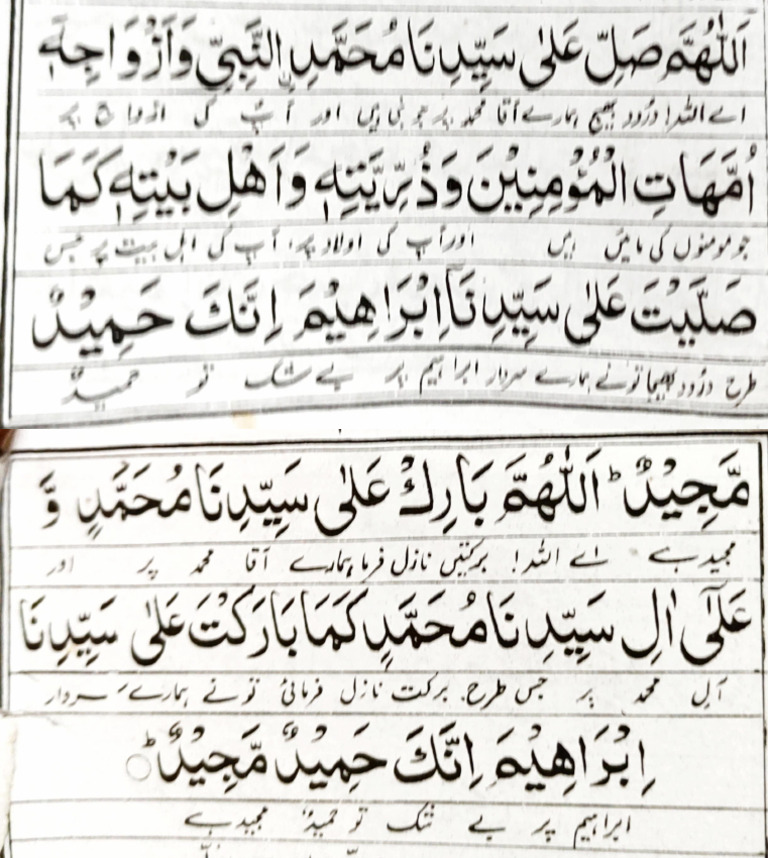 اَللّٰهُمَّ صَلِّ عَلٰى سَيِّدِنَا مُحَمَّدِ النَّبِيِّ وَاَزْوَاجِهٖ
اے اللہ! درُود بھیج ہمارے آقا محمد پر جو نبی ہیں اور آپ کی ازواج پر
اُمَّهَاتِ الْمُؤْمِنِيْنَ وَذُرِّيَّتِهٖ وَاَهْلِ بَيْتِهٖ كَمَا
جو مومنوں کی مائیں ہیں اور آپ کی اولاد پر، آپ کی اہل بیت پر جس
صَلَّيْتَ عَلٰى سَيِّدِنَا اِبْرَاهِيْمَ اِنَّكَ حَمِيْدٌ
طرح درُود بھیجا تونے ہمارے سردار ابراہیم پر بے شک تو حمیدٌ
مَّجِيْدٌ ؕ اَللّٰهُمَّ بَارِكْ عَلٰى سَيِّدِنَا مُحَمَّدٍ وَّ
مجید ہے اے اللہ! برکتیں نازل فرما ہمارے آقا محمد پر اور
عَلٰٓى اٰلِ سَيِّدِنَا مُحَمَّدٍ كَمَا بَارَكْتَ عَلٰى سَيِّدِنَا
آلِ محمد پر جس طرح برکت نازل فرمائی تونے ہمارے سردار
اِبْرَاهِيْمَ اِنَّكَ حَمِيْدٌ مَّجِيْدٌ ؕ
ابراہیم پر بے شک تو حمیدٌ مجید ہے